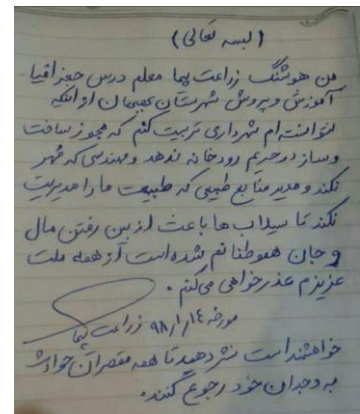 (بسمه تعالی)
من هوشنگ زراعت پیما معلم درس جغرافیا
آموزش و پرورش شهرستان ممسنی از اینکه
نتوانسته ام شهرداری تربیت کنم که مجوز ساخت
و ساز در حریم رودخانه ندهد و مهندسی که مهر
نکند و مدیر منابع طبیعی که طبیعت ما را مدیریت
نکند تا سیلاب ها باعث از بین رفتن مال
و جان هموطنانم شده است از همه ملت
عزیزم عذرخواهی می کنم.
مورخه ۹۸/۱/۱۴ زراعت پیما
خواهشمند است نشر دهید تا همه مقصران حوادث
به وجدان خود رجوع کنند.